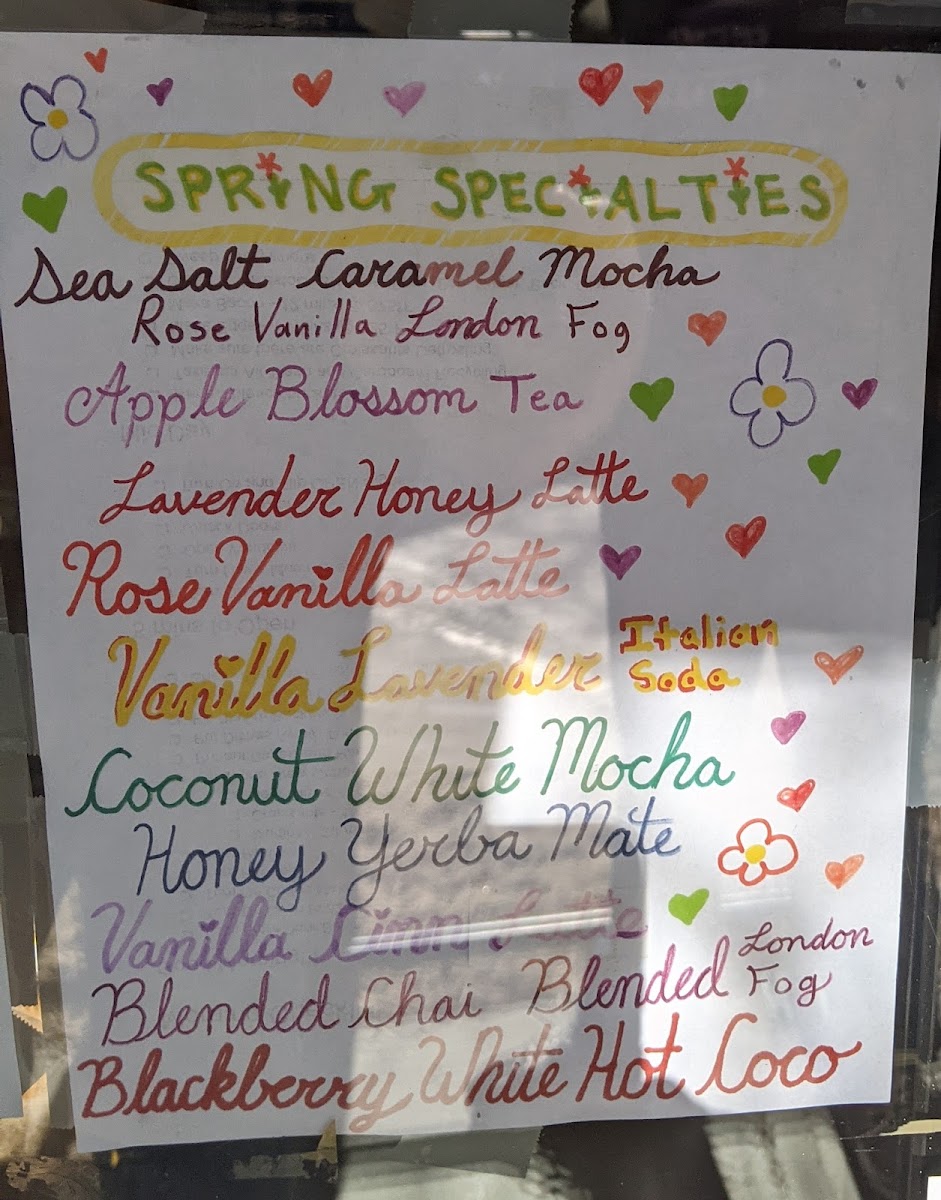 SPRING SPECIALTIES
Sea Salt Caramel Mocha
Rose Vanilla London Fog
Apple Blossom Tea
Lavender Honey Latte
Rose Vanilla Latte
Vanilla Lavender Italian Soda
Coconut White Mocha
Honey Yerba Mate
Vanilla Cinn Latte
Blended Chai Blended London Fog
Blackberry White Hot Coco